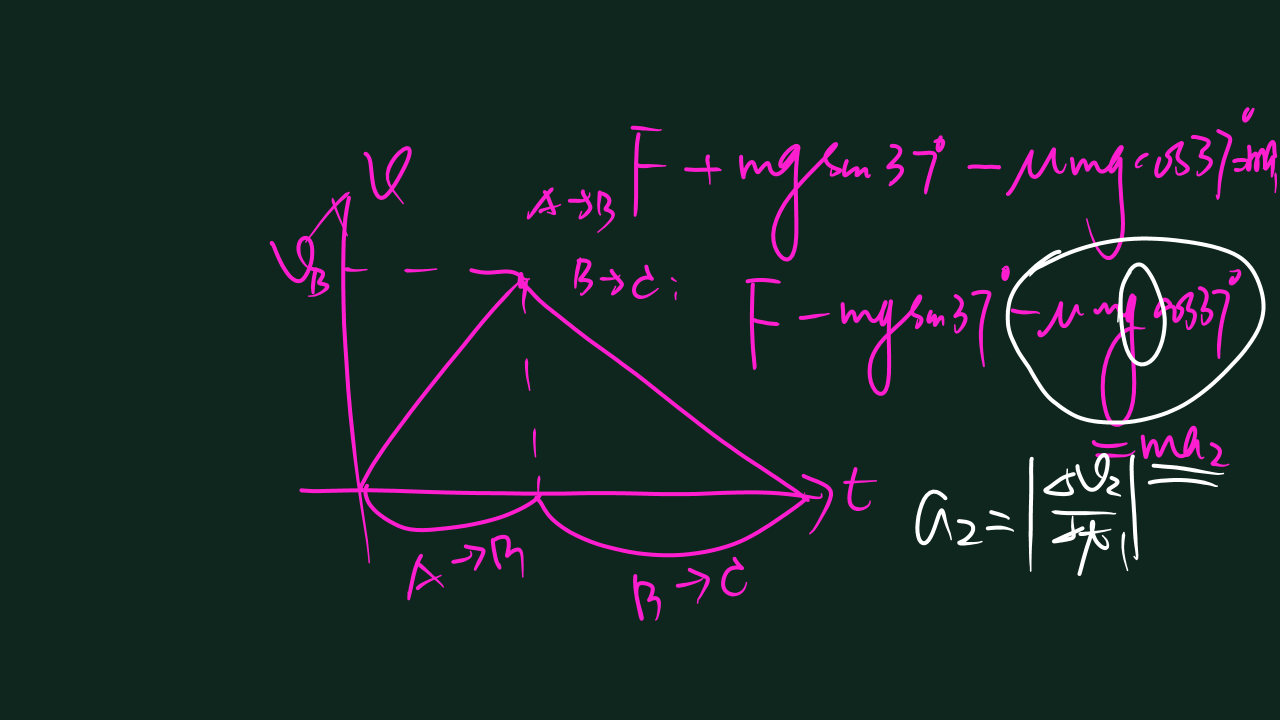 v
v_B
A→B F + mg sin 37° − μmg cos 37° = ma₁
B→C: F − mg sin 37° − μmg cos 37°
= ma₂
t
a₂ = |Δv₂/Δt₁|
A→B
B→C